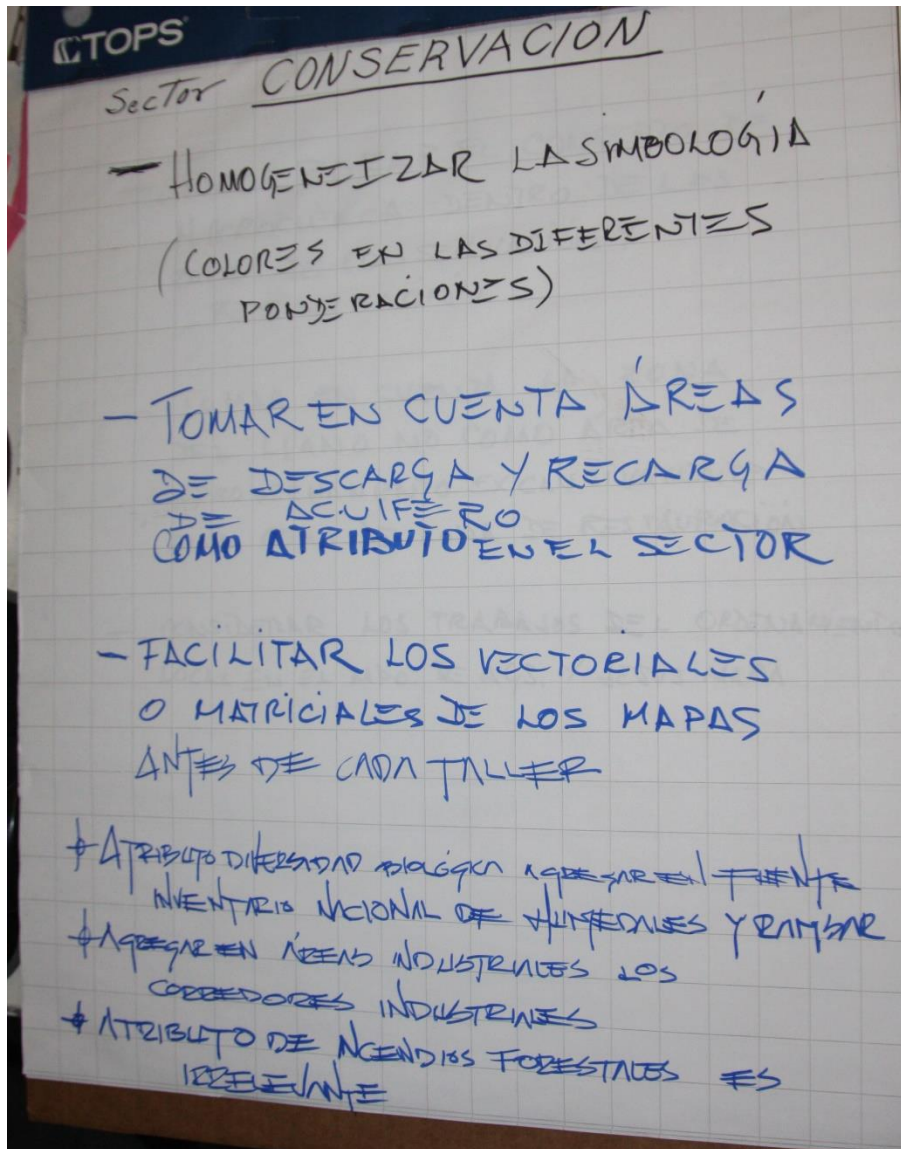 TOPS
Sector CONSERVACION
- HOMOGENEIZAR LA SIMBOLOGÍA
(COLORES EN LAS DIFERENTES
PONDERACIONES)
- TOMAR EN CUENTA ÁREAS
DE DESCARGA Y RECARGA
DE ACUIFERO
COMO ATRIBUTO EN EL SECTOR
- FACILITAR LOS VECTORIALES
O MATRICIALES DE LOS MAPAS
ANTES DE CADA TALLER
+ ATRIBUTO DIVERSIDAD BIOLÓGICA AGREGAR EN FUENTE
INVENTARIO NACIONAL DE HUMEDALES Y RAMSAR
+ AGREGAR EN ÁREAS INDUSTRIALES LOS
CORREDORES INDUSTRIALES
+ ATRIBUTO DE INCENDIOS FORESTALES ES
IRRELEVANTE